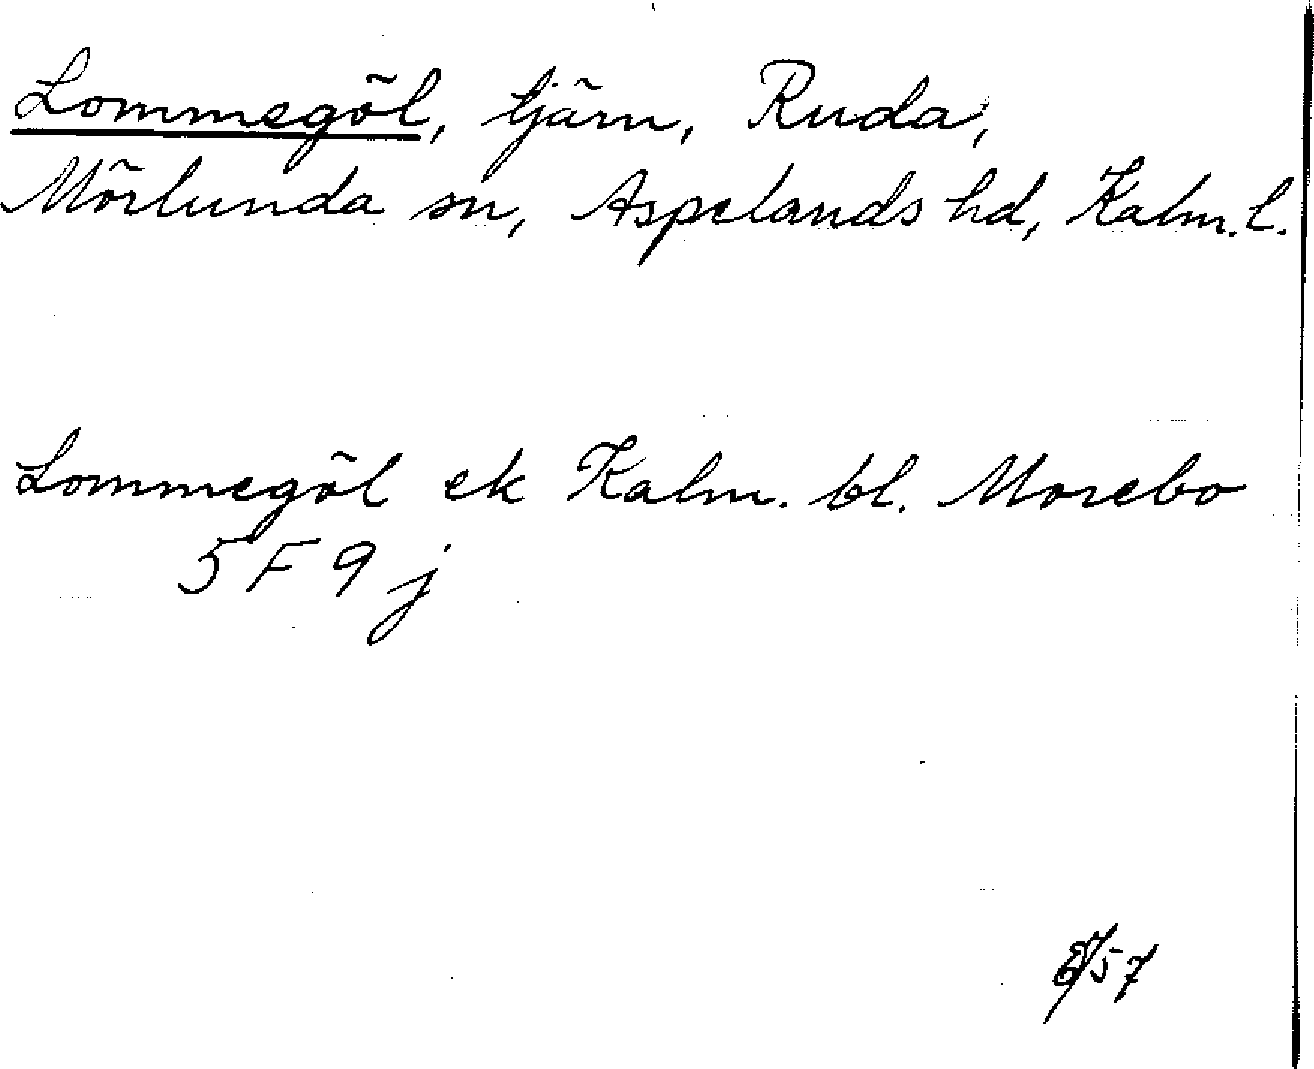 Lommegöl, tjärn, Ruda,
Mörlunda sn, Aspelands hd, Kalm. l.
Lommegöl ek Kalm. bl. Morebo
5 F 9 j